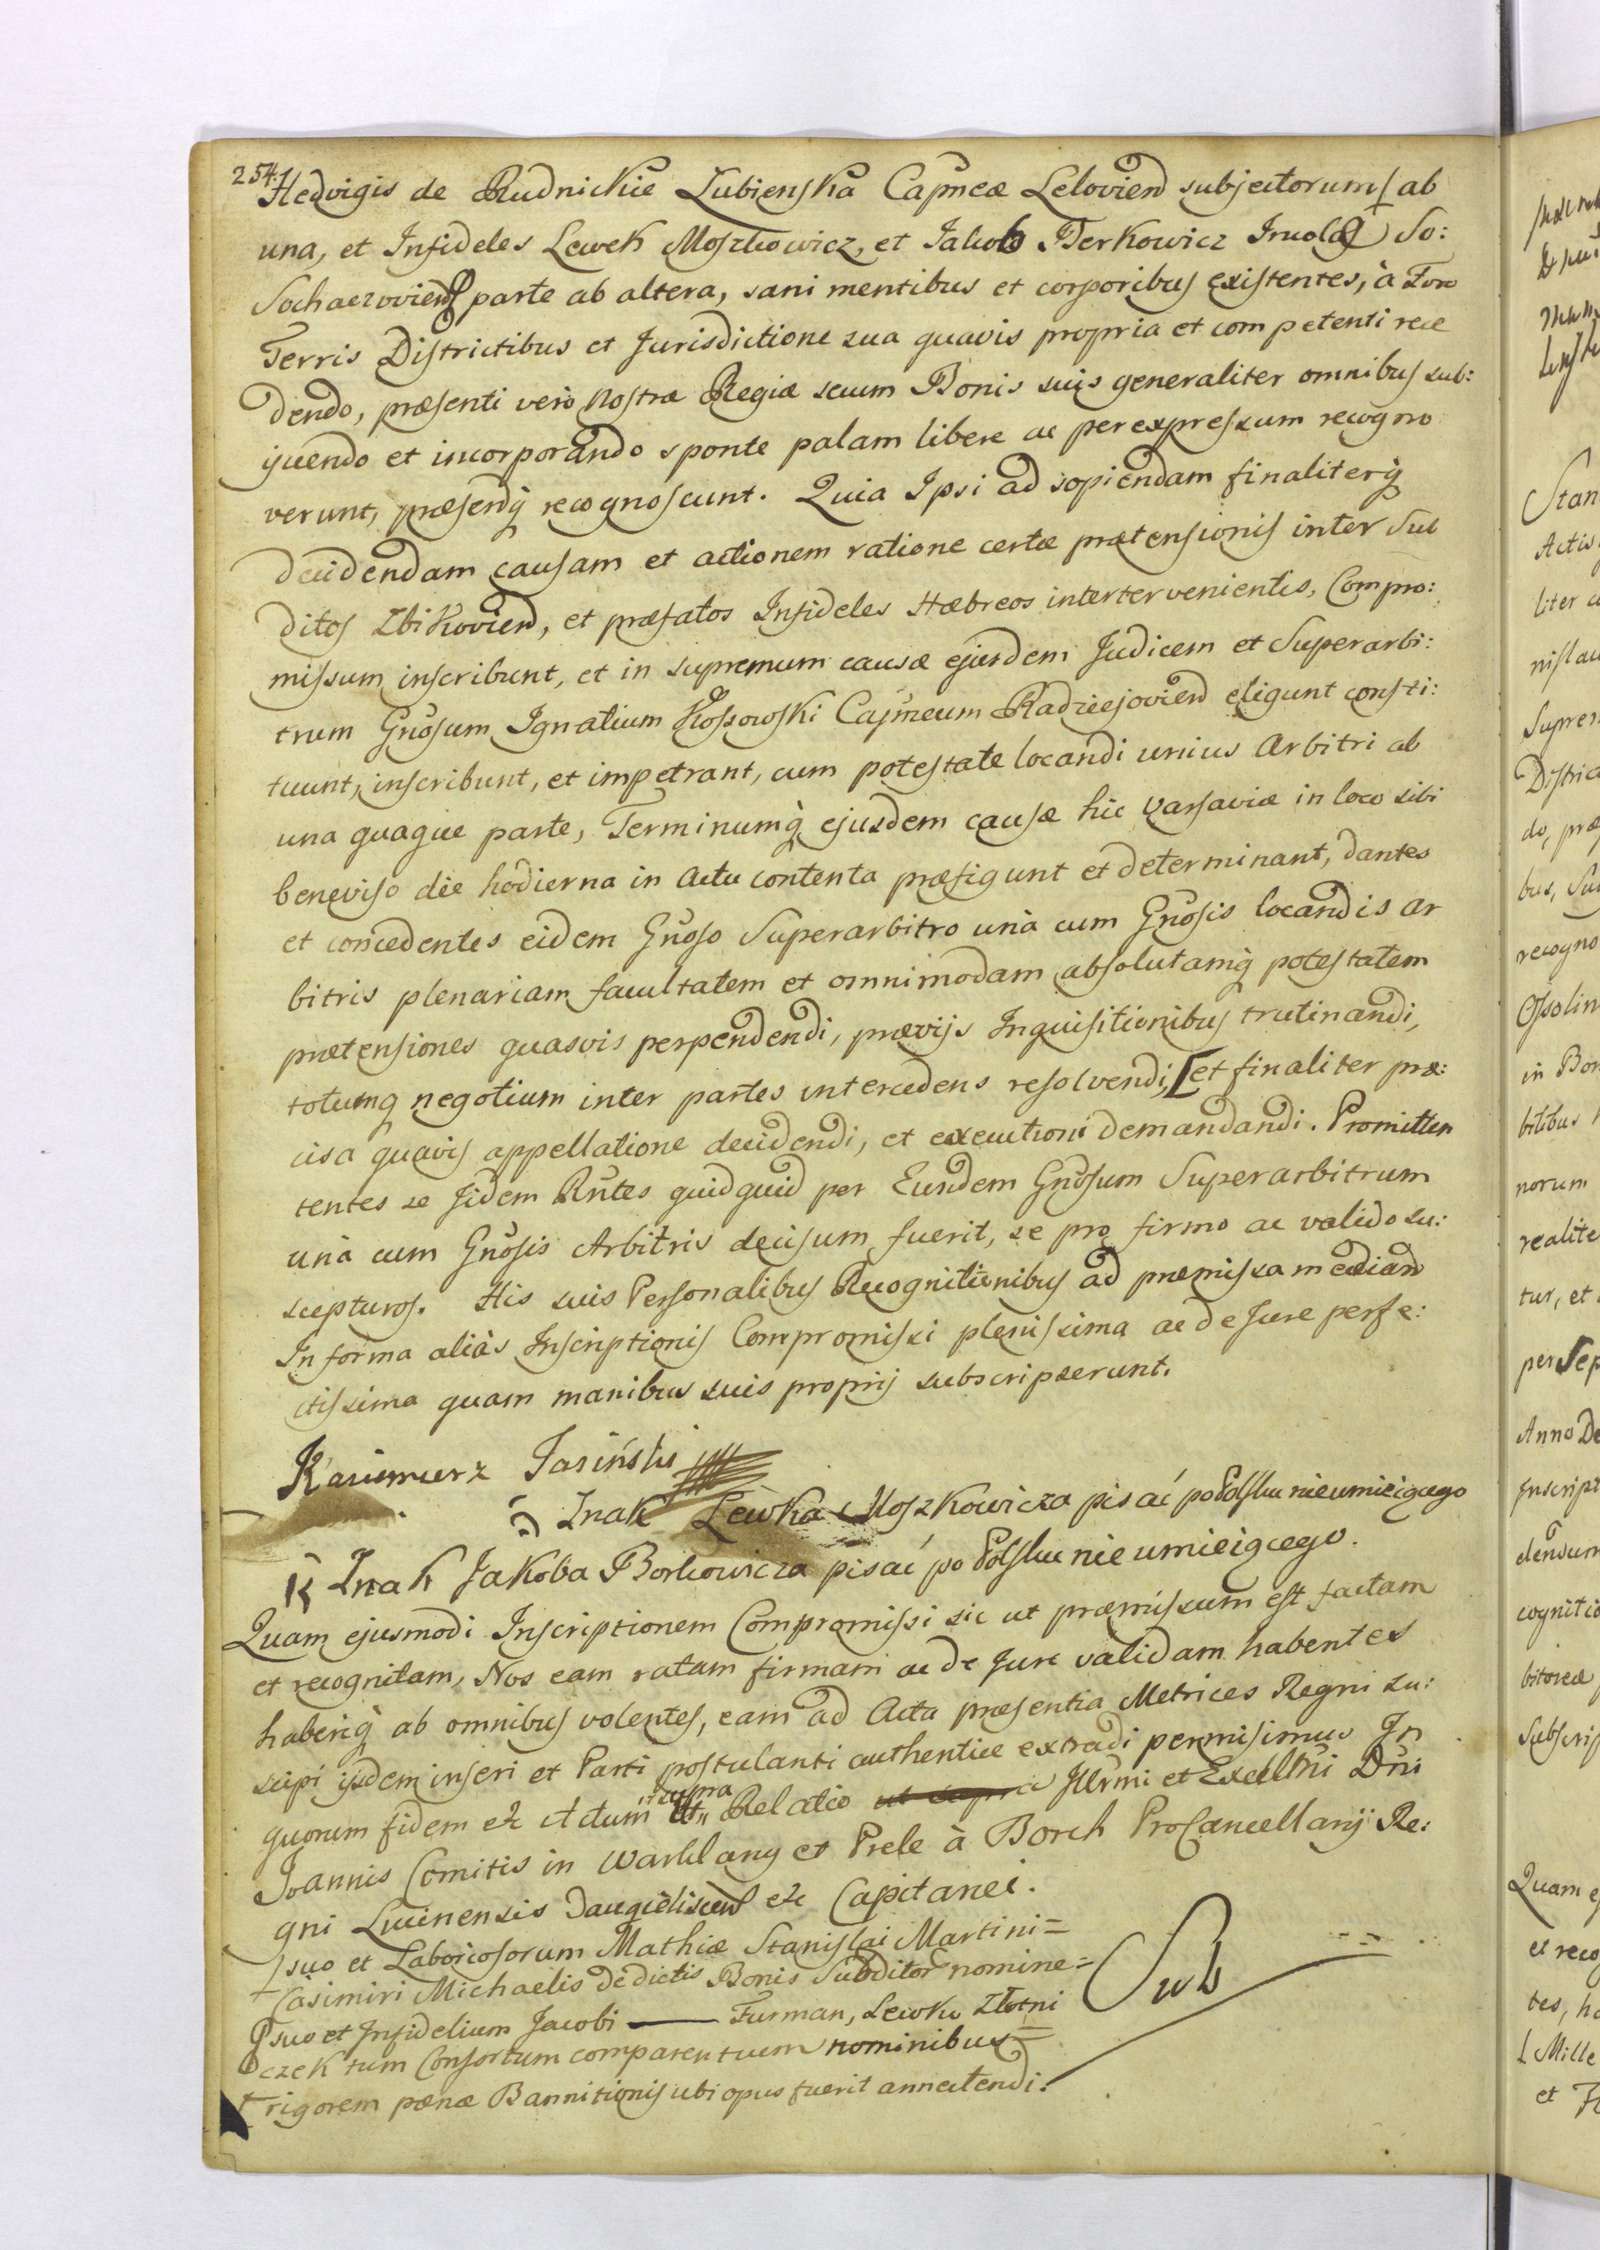 254.
Hedvigis de Rudnickie Łubienska Capnea Leloviens subjectorum ab
una, et Infideles Lewek Moszkowicz, et Jakob Berkowicz Incolæ So:
Sochaczoviens parte ab altera, sani mentibus et corporibus existentes, à Foro
Terris Districtibus et Jurisdictione sua quavis propria et competenti rece
dendo, præsenti verò Nostræ Regiæ seum Bonis suis generaliter omnibus sub:
ijuendo et incorporando sponte palam libere ac per expressum recogno
verunt, præsentq recognoscunt. Quia Ipsi ad sopiendam finaliterq̀
decidendam causam et actionem ratione certæ prætensionis inter Sub
ditos Zbikoviens, et præfatos Infideles Hæbreos interterveníentis, Compro:
missum inscribunt, et in supremum causæ ejusdem Judicem et Superarbi:
trum Gnosum Ignatium Kossowski Capneum Radziejoviens eligunt consti:
tuunt, inscribunt, et impetrant, cum potestate locandi unius Arbitri ab
una quaque parte, Terminumq̀ ejusdem causæ hic Varsaviæ in loco sibi
beneviso die hodierna in Actu contenta præfigunt et determinant, dantes
et concedentes eidem Gnoso Superarbitro unà cum Gnosis locandis Ar
bitris plenariam facultatem et omnimodam absolutamq̀ potestatem
prætensiones quasvis perpendendi, prævijs Inquisitionibus trutinandi,
totumq negotium inter partes intercedens resolvendi, [et finaliter præ:
cisa quavis appellatione decidendi, et executioni demandandi. Promitten
tentes se Jidem Rntes quidquid per Eundem Gnosum Superarbitrum
unà cum Gnosis Arbitris decisum fuerit, se pro firmo ac valido su:
scepturos. His suis Personalibus Recognitionibus ad præmissa median
In forma aliàs Inscriptionis Compromissi plenissima ac de Jure perfe:
ctissima quam manibus suis proprij subscripserunt.
Kazimierz Jasiński
Znak Lewka Moszkowicza pisać po Polsku nieumieiącego
Znak Jakoba Borkowicza pisać po Polsku nieumieiącego.
Quam ejusmodi Inscriptionem Compromissi sic ut præmissum est factam
et recognitam, Nos eam ratam firmam ac de Jure validam habentes
haberiq̀ ab omnibus volentes, eam ad Acta præsentia Metrices Regni su:
scipi ijsdem inseri et Parti postulanti authentice extradi permisimus In
quorum fidem et Actum ut supra Relatio ut supra Illrmi et Excellmi Dni
Joannis Comitis in Warklany et Prele à Borch ProCancellarij Re:
gni Lucinensis Daugieliscens etc Capitanei.
suo et Laboriosorum Mathiæ Stanislai Martini=
Casimiri Michaelis de dictis Bonis Subditor nomine=
suo et Infidelium Jacobi — Furman, Lewku Złotni
czek tum Consortum comparentium nominibus=
rigorem pœnæ Bannitionis ubi opus fuerit annectendi.
Sub